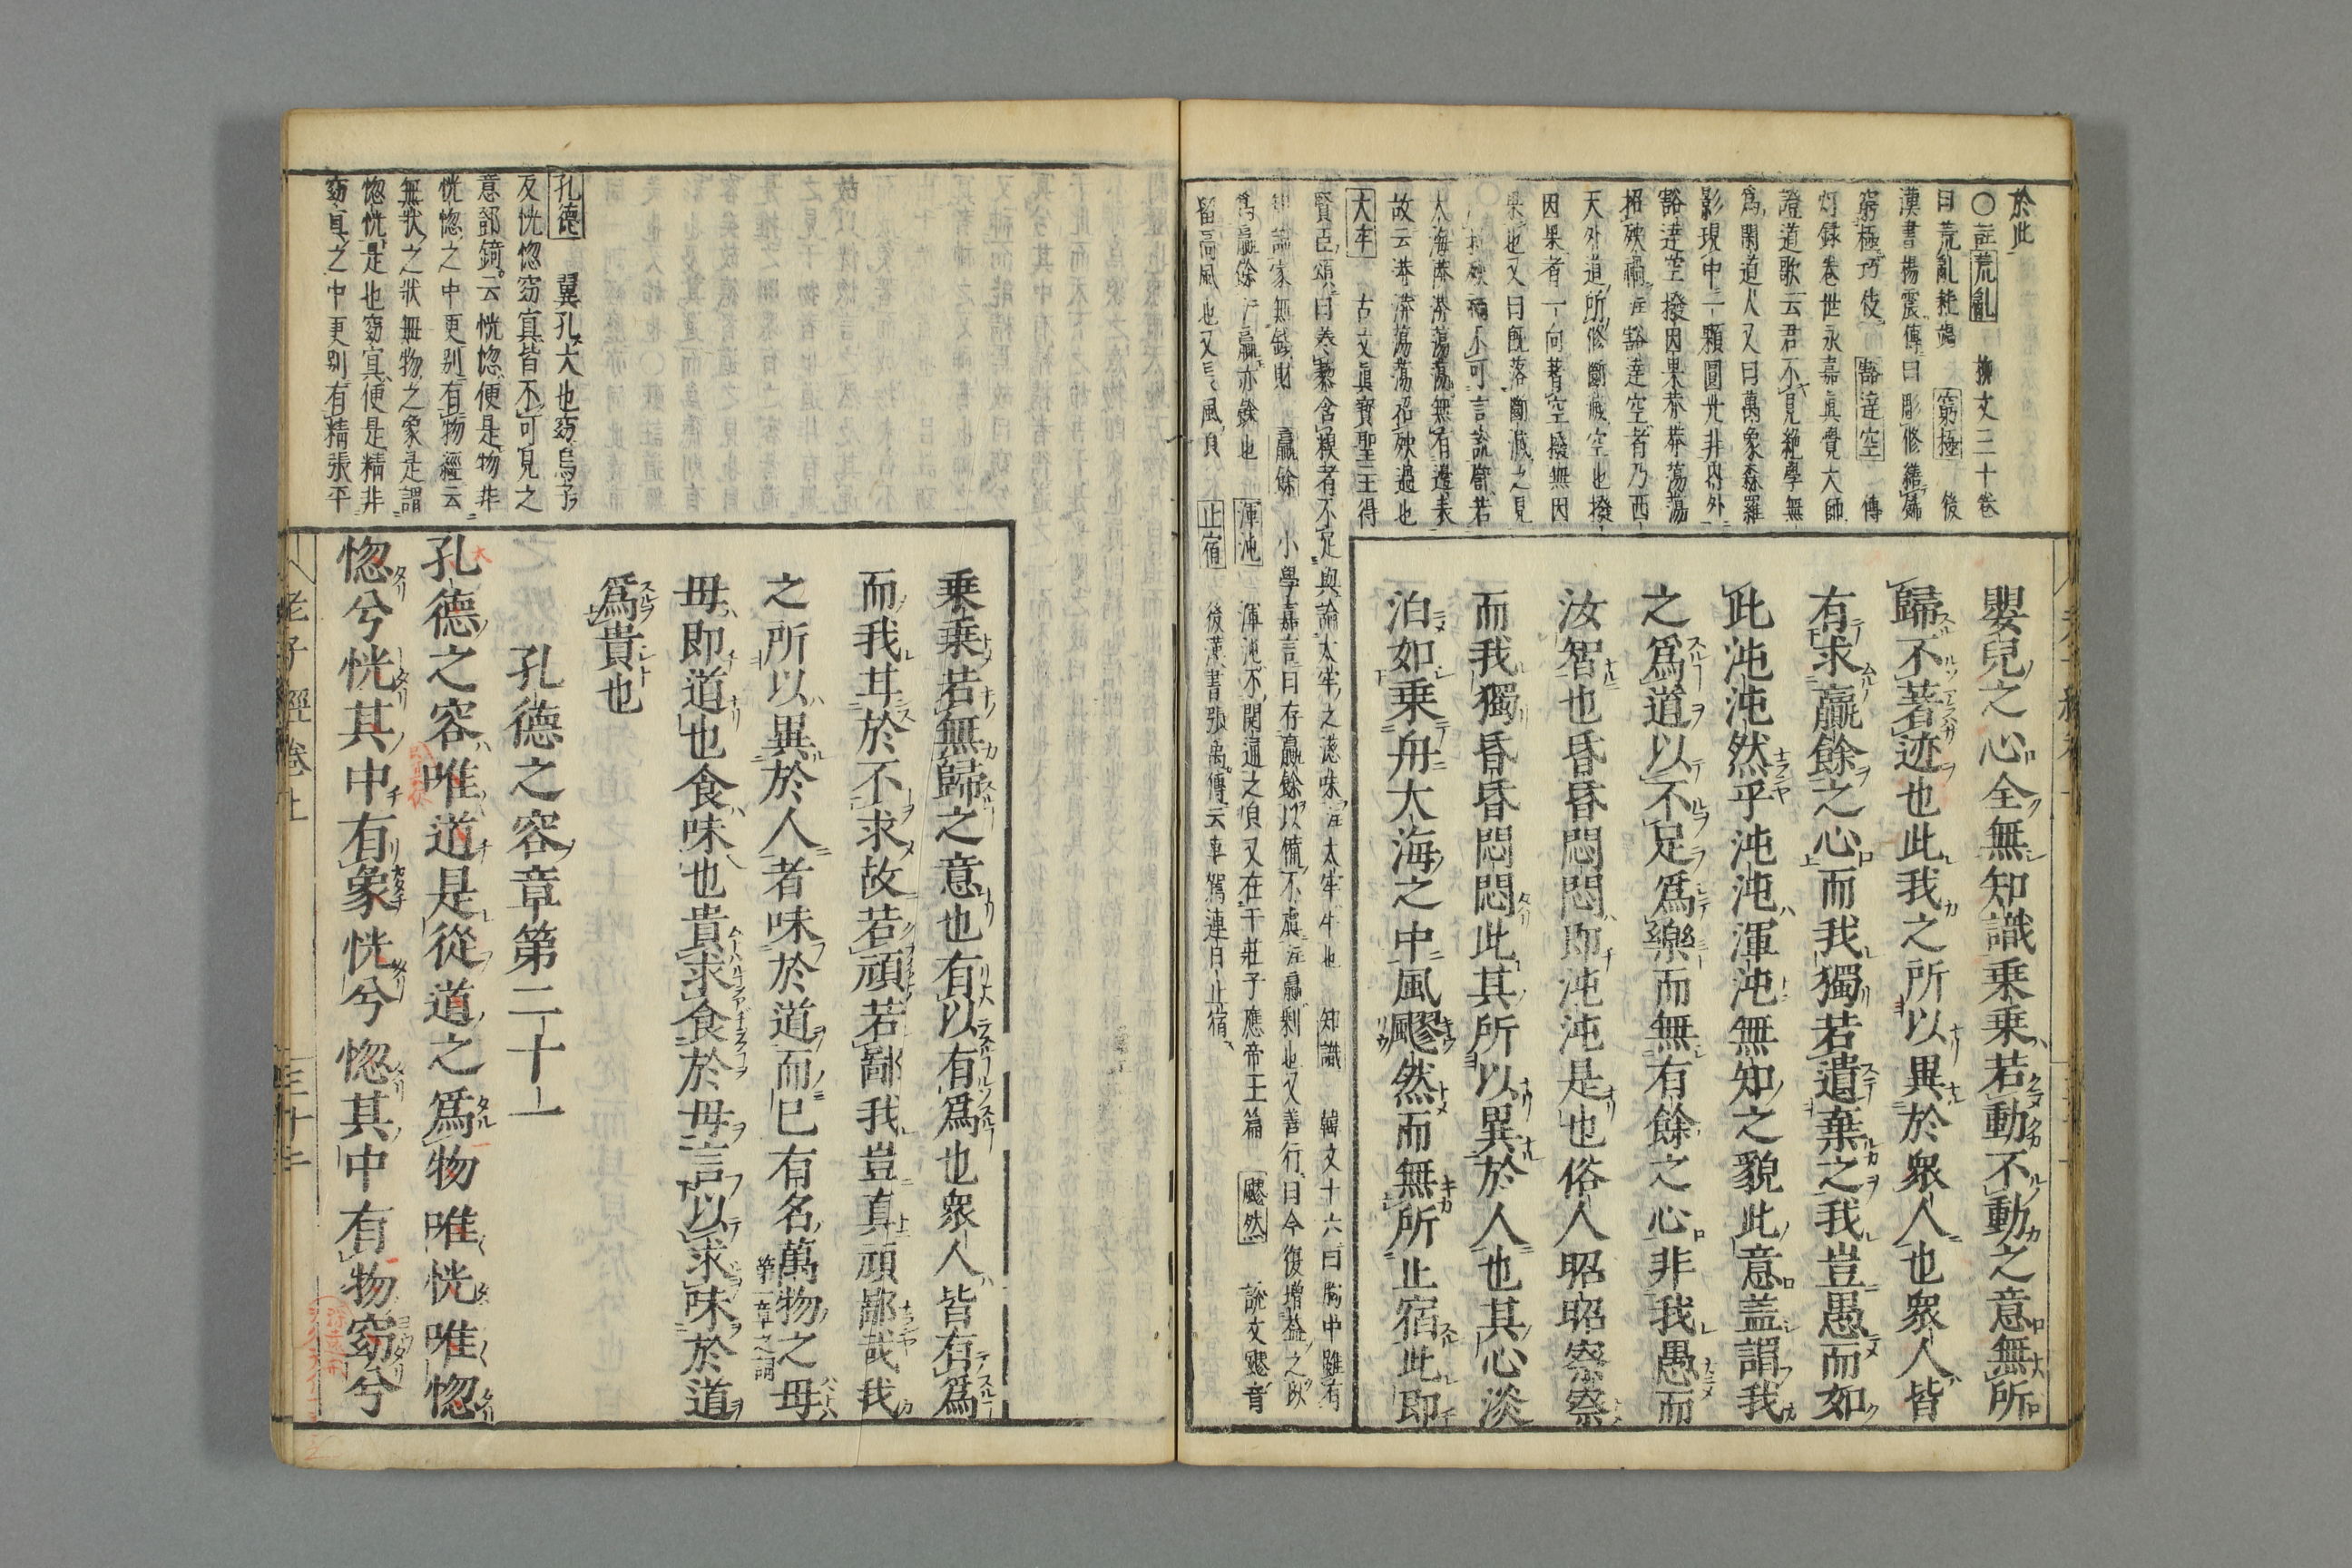 於此
○註荒亂 柳文三十卷
曰荒亂耗竭 窮極 後
漢書楊震傳曰彫修繕飾
窮極巧伎 豁達空 傳
灯録卷丗永嘉真覺大師
證道歌云君不見絶學無
爲閑道人又曰萬象森羅
影現中一顆圓光非内外
豁達空撥因果莾莾蕩蕩
招殃禍註豁達空者乃西
天外道所修斷滅空也撥
因果者一向著空撥無因
果也又曰既落斷滅之見
殃禍不可言說譬若
大海莾莾蕩蕩無有邊表
故云莾莾蕩蕩招殃過也
大牢 古文眞寶聖主得
賢臣頌曰羹藜含糗者不足與論太牢之滋味註太牢牛也 知識 韓文十六曰胸中雖有
知識家無錢財 贏餘 小學嘉言曰存贏餘以備不虞註贏剩也又善行曰今復增益之以
爲贏餘註贏亦餘也 渾沌 渾沌不開通之皃又在于莊子應帝王篇 飂然 說文飂音
留高風也又長風皃 止宿 後漢書張禹傳云車駕連日止宿
嬰兒之心全無知識乗乗若動不動之意無所
歸不著迹也此我之所以異於衆人也衆人皆
有求贏餘之心而我獨若遺棄之我豈愚而如
此沌沌然乎沌沌渾沌無知之貌此意盖謂我
之爲道以不足爲樂而無有餘之心非我愚而
汝智也昏昏悶悶即沌沌是也俗人昭昭察察
而我獨昏昏悶悶此其所以異於人也其心淡
泊如乗舟大海之中風飂然而無所止宿此即
孔德 翼孔大也窈烏了
反恍惚窈冥皆不可見之
意邵錡云恍惚便是物非
恍惚之中更別有物經云
無狀之狀無物之象是謂
惚恍是也窈冥便是精非
窈冥之中更別有精張平
乗乗若無歸之意也有以有爲也衆人皆有爲
而我甘於不求故若頑若鄙我豈真頑鄙哉我
之所以異於人者味於道而已有名萬物之母
第一章之謂
母即道也食味也貴求食於母言以求味於道
爲貴也
孔德之容章第二十一
孔德之容唯道是從道之爲物唯恍唯惚
惚兮恍其中有象恍兮惚其中有物窈兮
老子經卷上
三十二